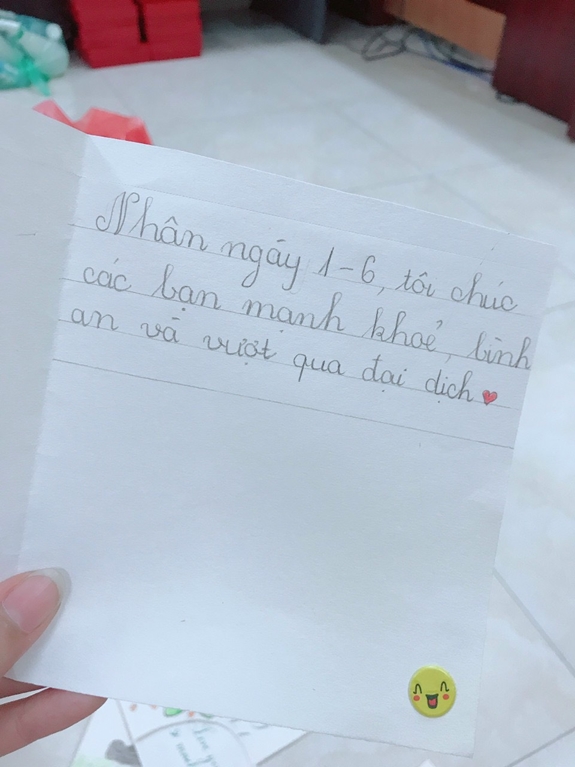 Nhân ngày 1-6, tôi chúc
các bạn mạnh khoẻ, bình
an và vượt qua đại dịch